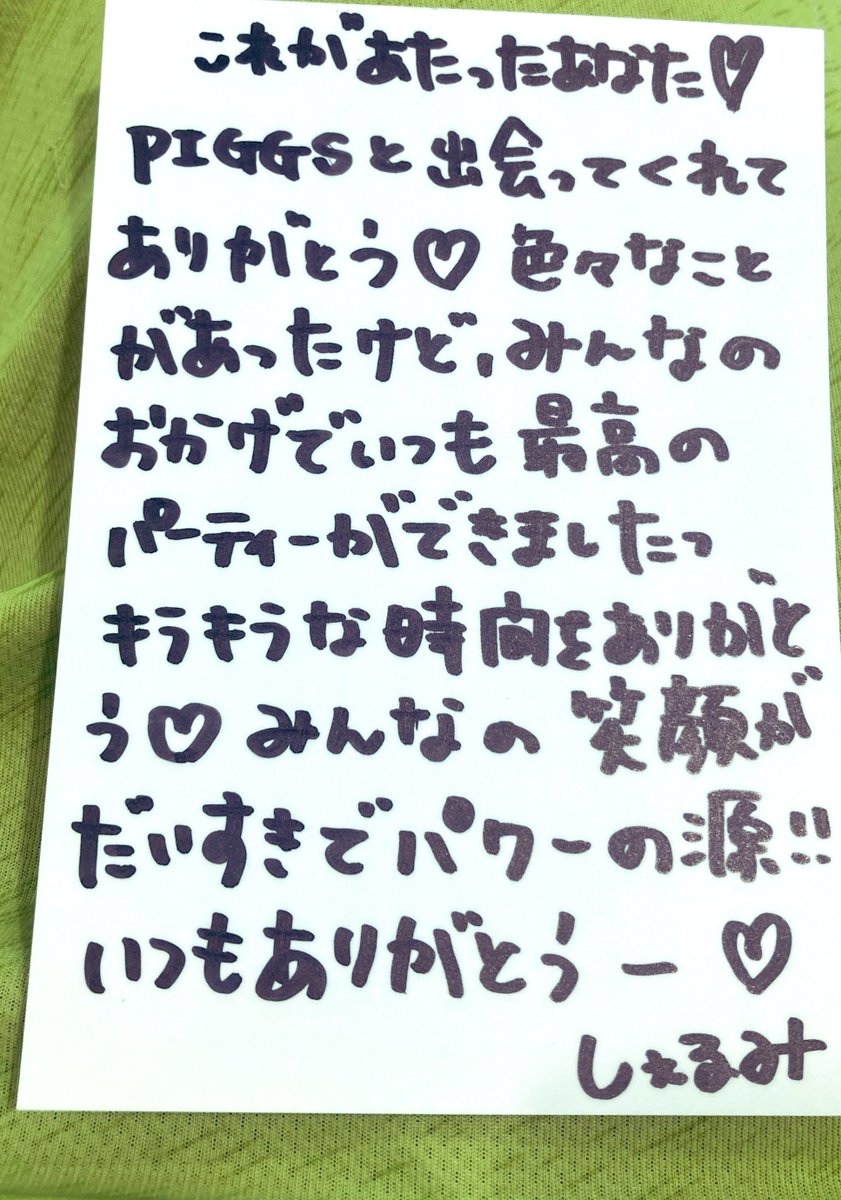 これがあたったあなた♡
PIGGSと出会ってくれて
ありがとう♡ 色々なこと
があったけど、みんなの
おかげでいつも最高の
パーティーができましたっ
キラキラな時間をありがと
う♡ みんなの笑顔が
だいすきでパワーの源!!
いつもありがとうー♡
しぇるみ